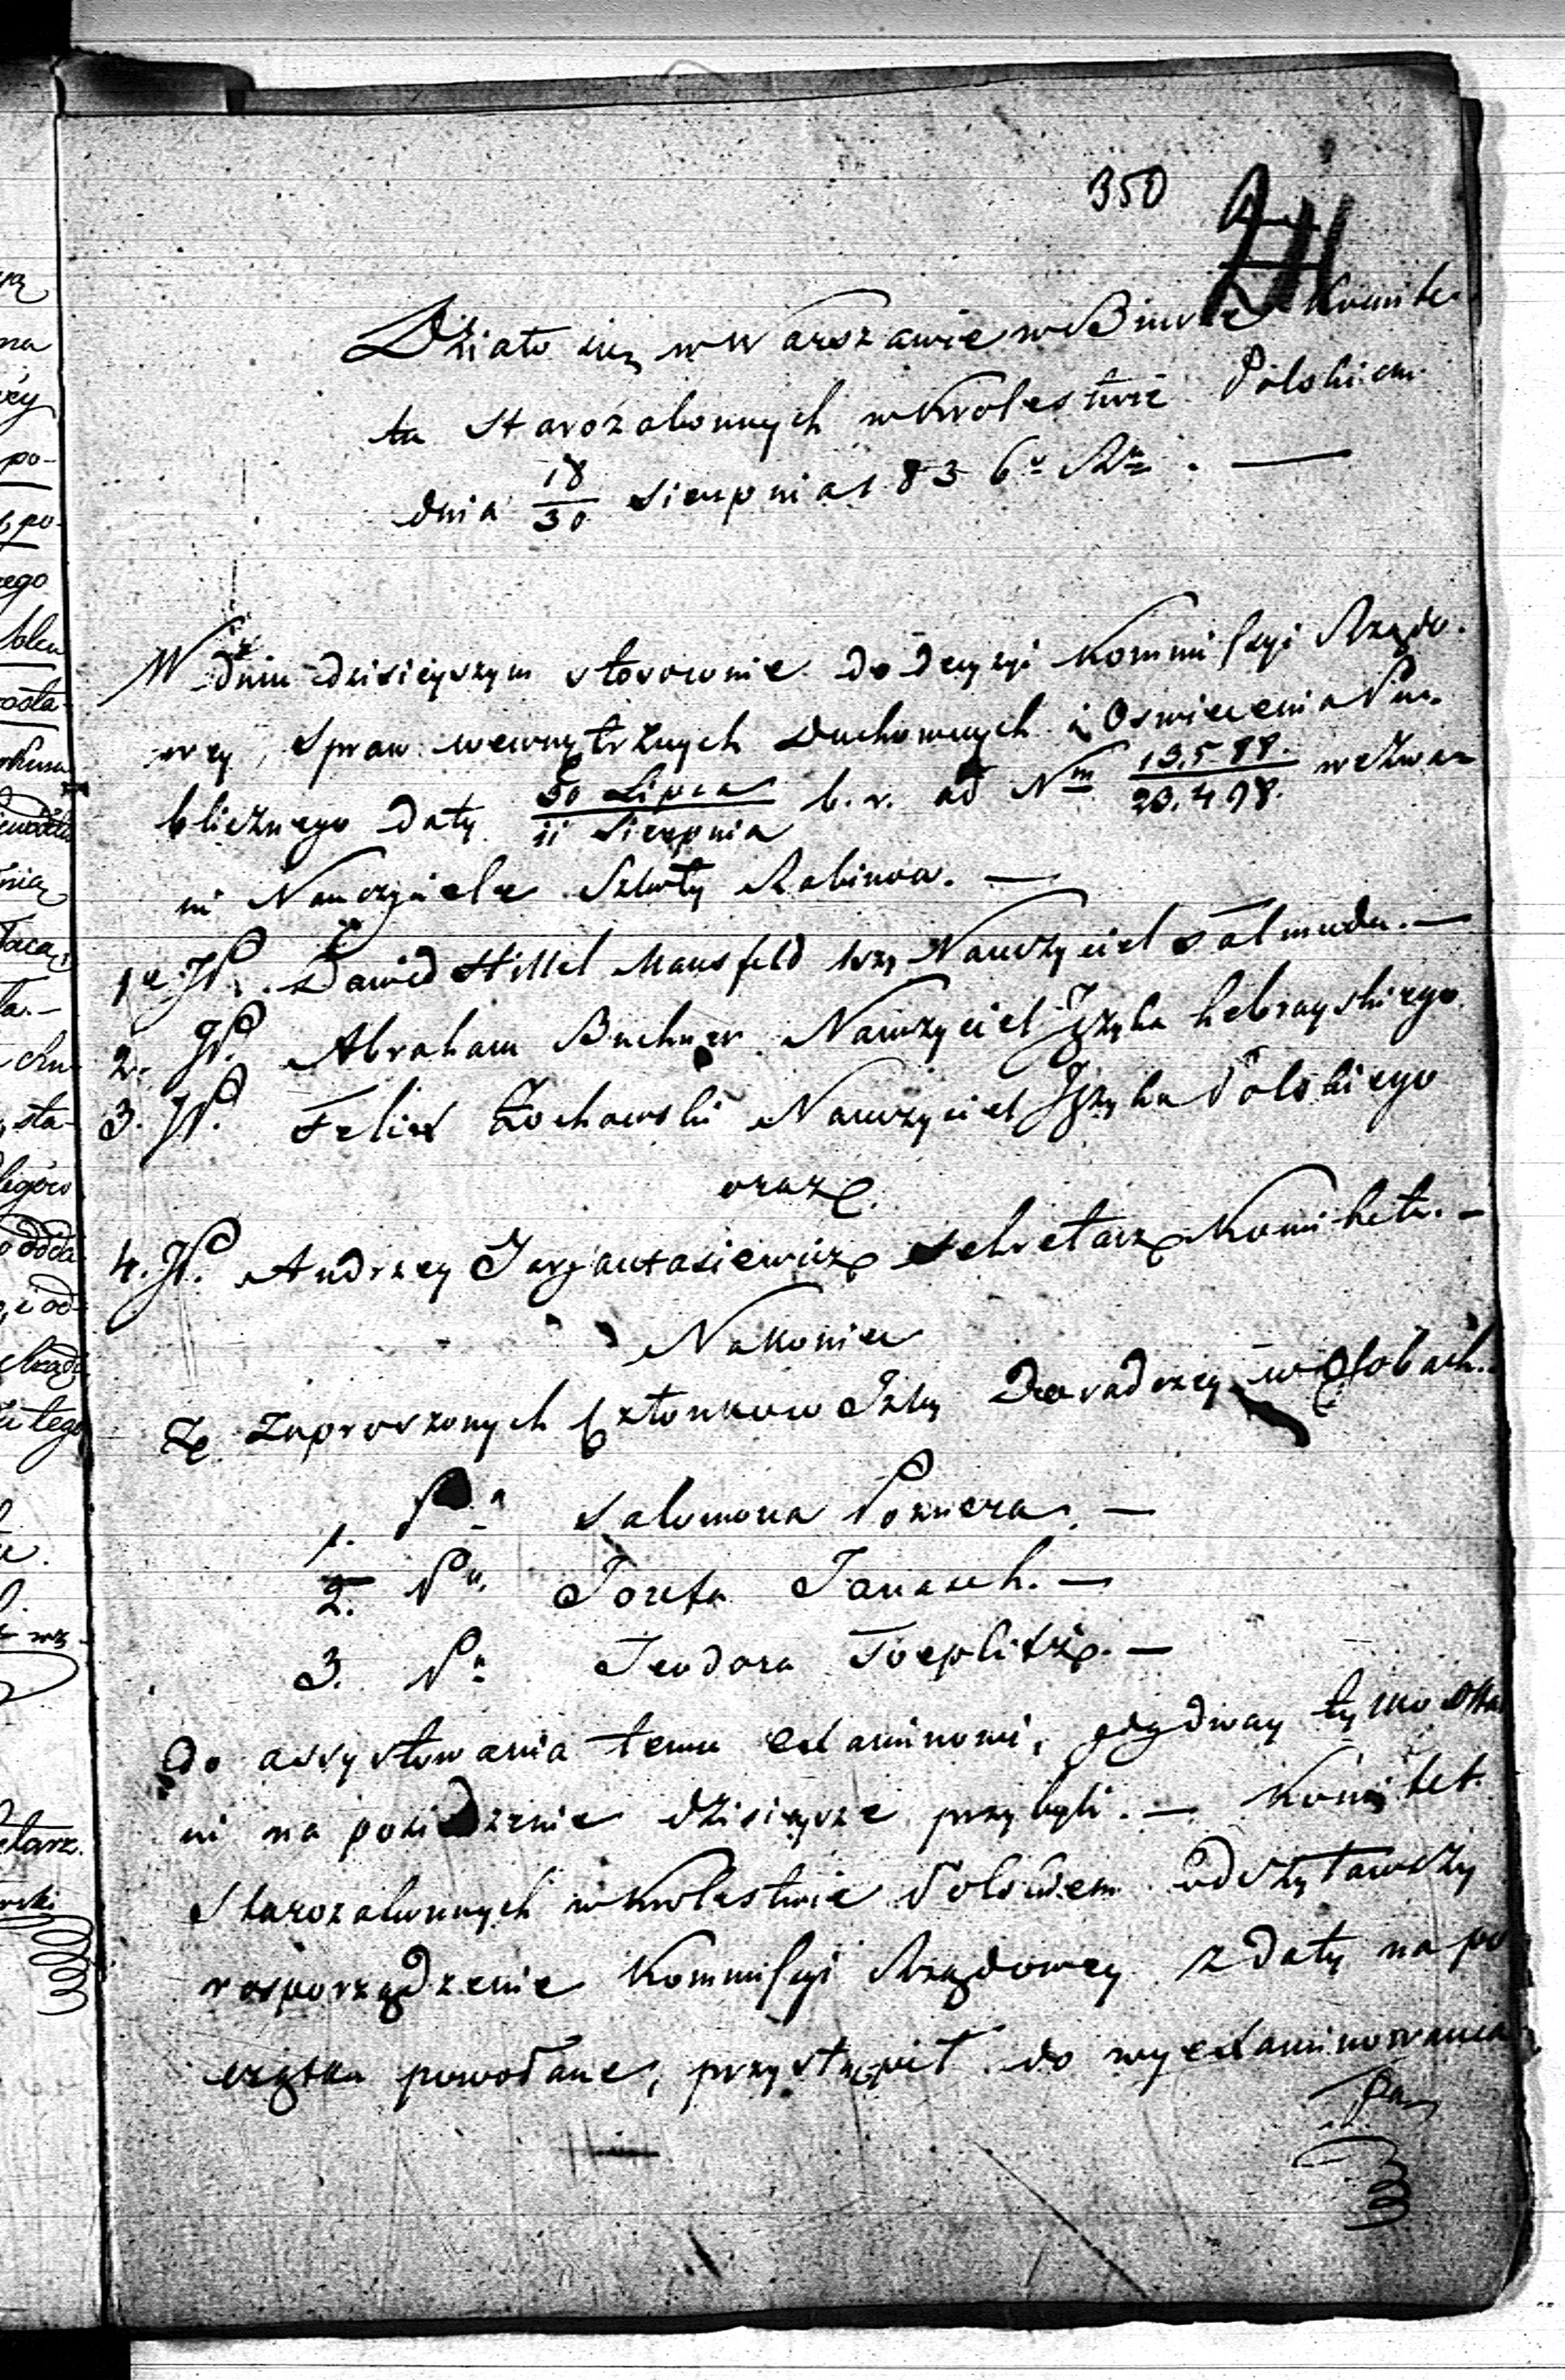 350
Działo się w Warszawie w Biurze Komite-
tu Starozakonnych w Krolestwie Polskiem
dnia 18/30 Sierpnia 1836º Rº. —
W dniu dzisieyszym stosownie do Decyzyi Kommissyi Rządo-
wey, Spraw wewnętrznych Duchownych i Oswiecenia Pu-
blicznego daty 30 Lipca/11 Sierpnia b. r. ad Nm 13.588./20.498. wezwa-
ni Nauczyciele Szkoły Rabinow. —
1e JP. Dawid Hillel Mansfeld Nauczyciel Talmudu. —
2. JP. Abraham Buchner Nauczyciel Języka hebrayskiego
3. JP. Felix Żochowski Nauczyciel Języka Polskiego
oraz
4. JP. Andrzey Sekretarz Komitetu. —
Nakoniec
Z zaproszonych Członkow Izby Doradczey w Osobach.
1. Pa Salomona Poznera. —
2. Pa Jozefa Janasch. —
3. Pa Teodora Toeplitz. —
do assystowania temu examinowi, gdy dway tylko
ni na posiedzenie dzisieysze przybyli. — Komitet
Starozakonnych w Krolestwie Polskiem odczytawszy
rosporządzenie Kommissyi Rządowey z daty na po
czątku powołane, przystąpił do wyexaminowania
Pa